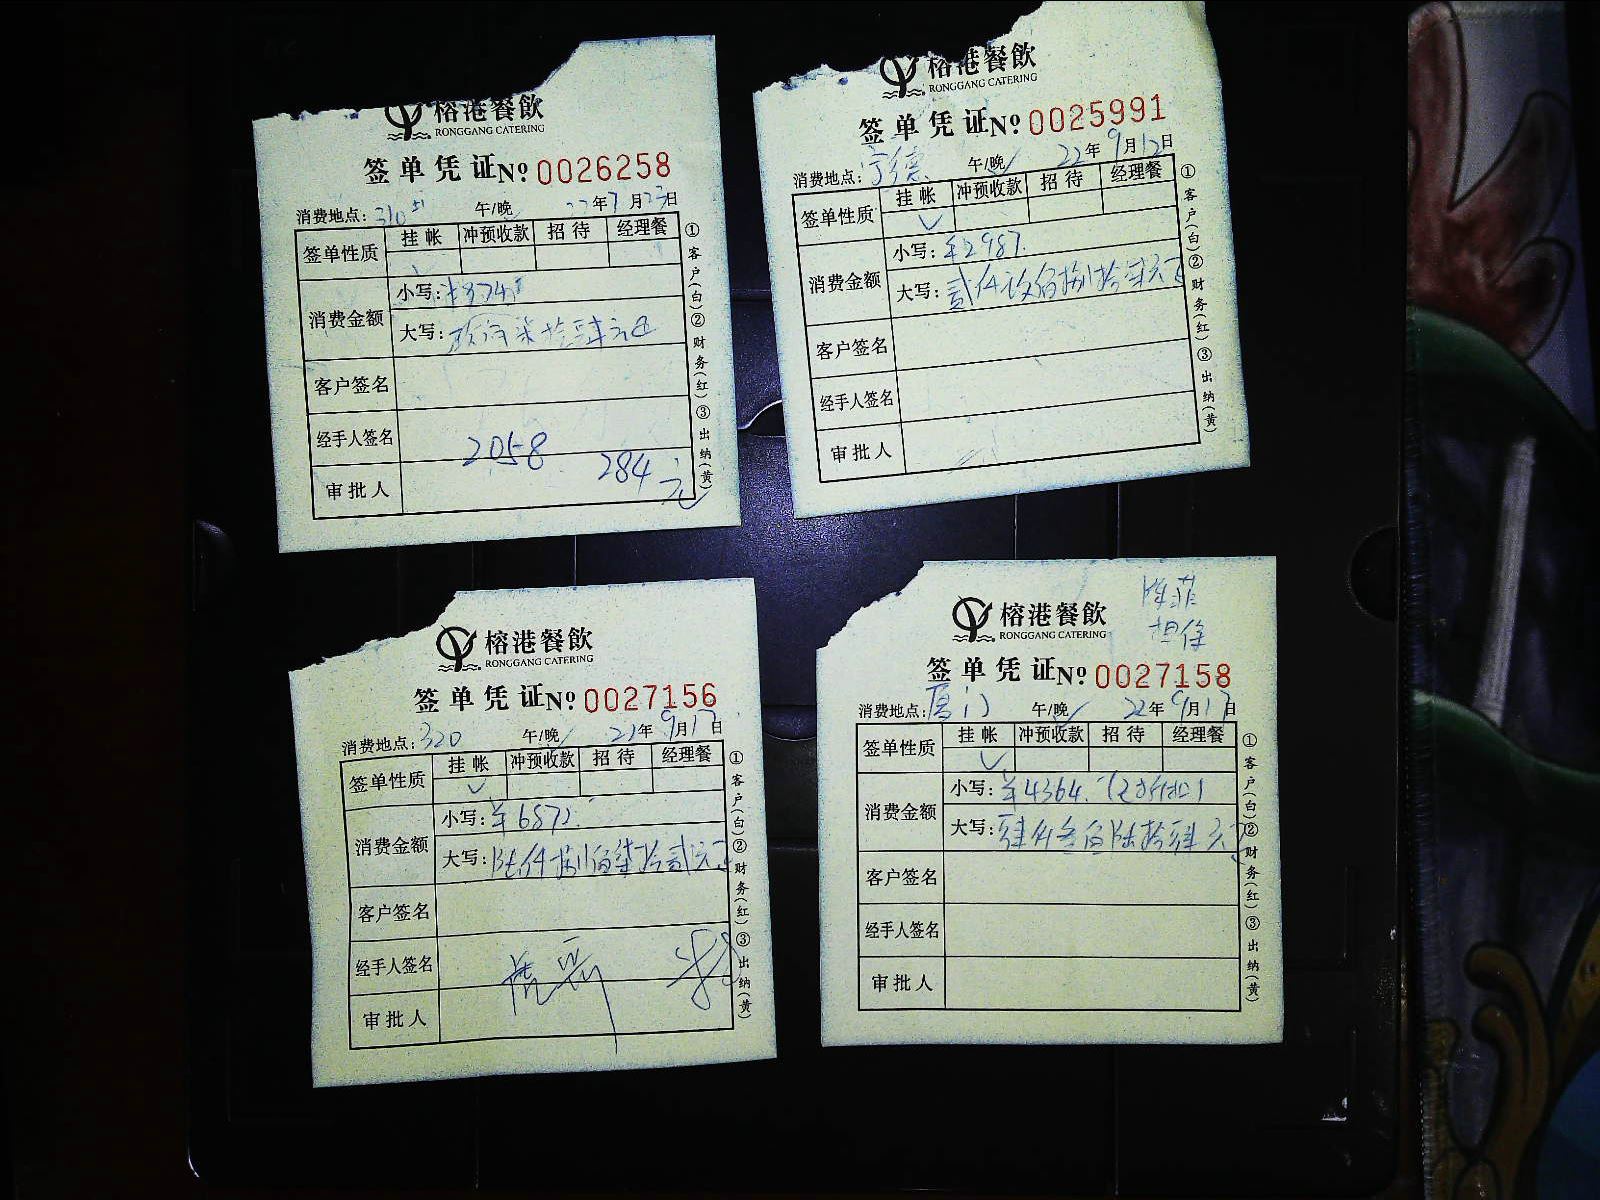 榕港餐飲
RONGGANG CATERING
签单凭证 No 0026258
消费地点: 310 午/晚 22年 月23日
签单性质 挂帐 冲预收款 招待 经理餐
消费金额
小写:
大写: 柒拾肆元
客户签名
经手人签名
2058
284元
审批人
①客户(白)②财务(红)③出纳(黄)
榕港餐飲
RONGGANG CATERING
签单凭证 No 0025991
消费地点: 宁德 午/晚 22年9月12日
签单性质 挂帐 冲预收款 招待 经理餐
消费金额
小写: ¥2987.
大写: 贰仟玖佰捌拾柒元正
客户签名
经手人签名
审批人
①客户(白)②财务(红)③出纳(黄)
榕港餐飲
RONGGANG CATERING
签单凭证 No 0027156
消费地点: 320 午/晚 22年9月17日
签单性质 挂帐 冲预收款 招待 经理餐
消费金额
小写: ¥6872.
大写: 陆仟捌佰柒拾贰元正
客户签名
经手人签名
审批人
①客户(白)②财务(红)③出纳(黄)
榕港餐飲
RONGGANG CATERING
签单凭证 No 0027158
消费地点: 厦门 午/晚 22年9月17日
签单性质 挂帐 冲预收款 招待 经理餐
消费金额
小写: ¥4364.
大写: 肆仟叁佰陆拾肆元正
客户签名
经手人签名
审批人
①客户(白)②财务(红)③出纳(黄)